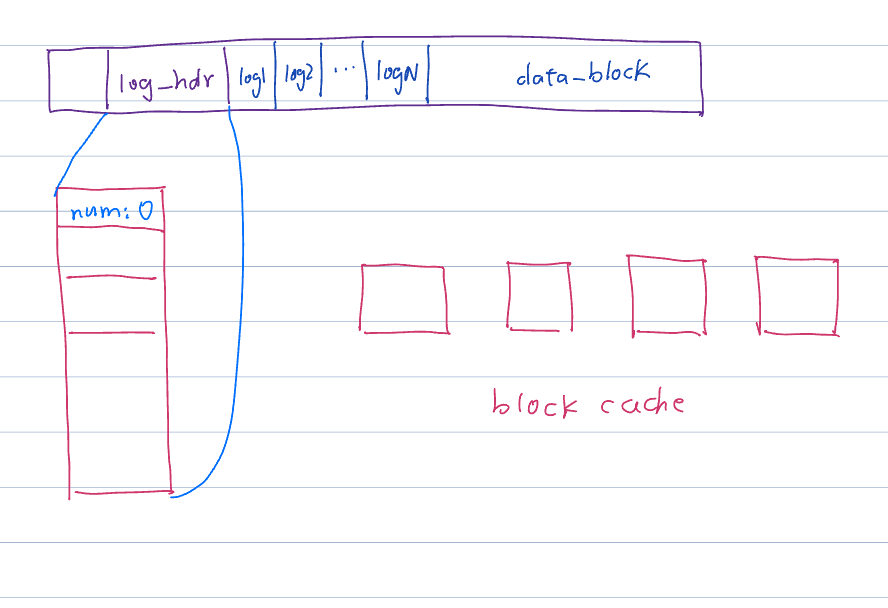 log_hdr log1 log2 ... logN data_block
num: 0
block cache